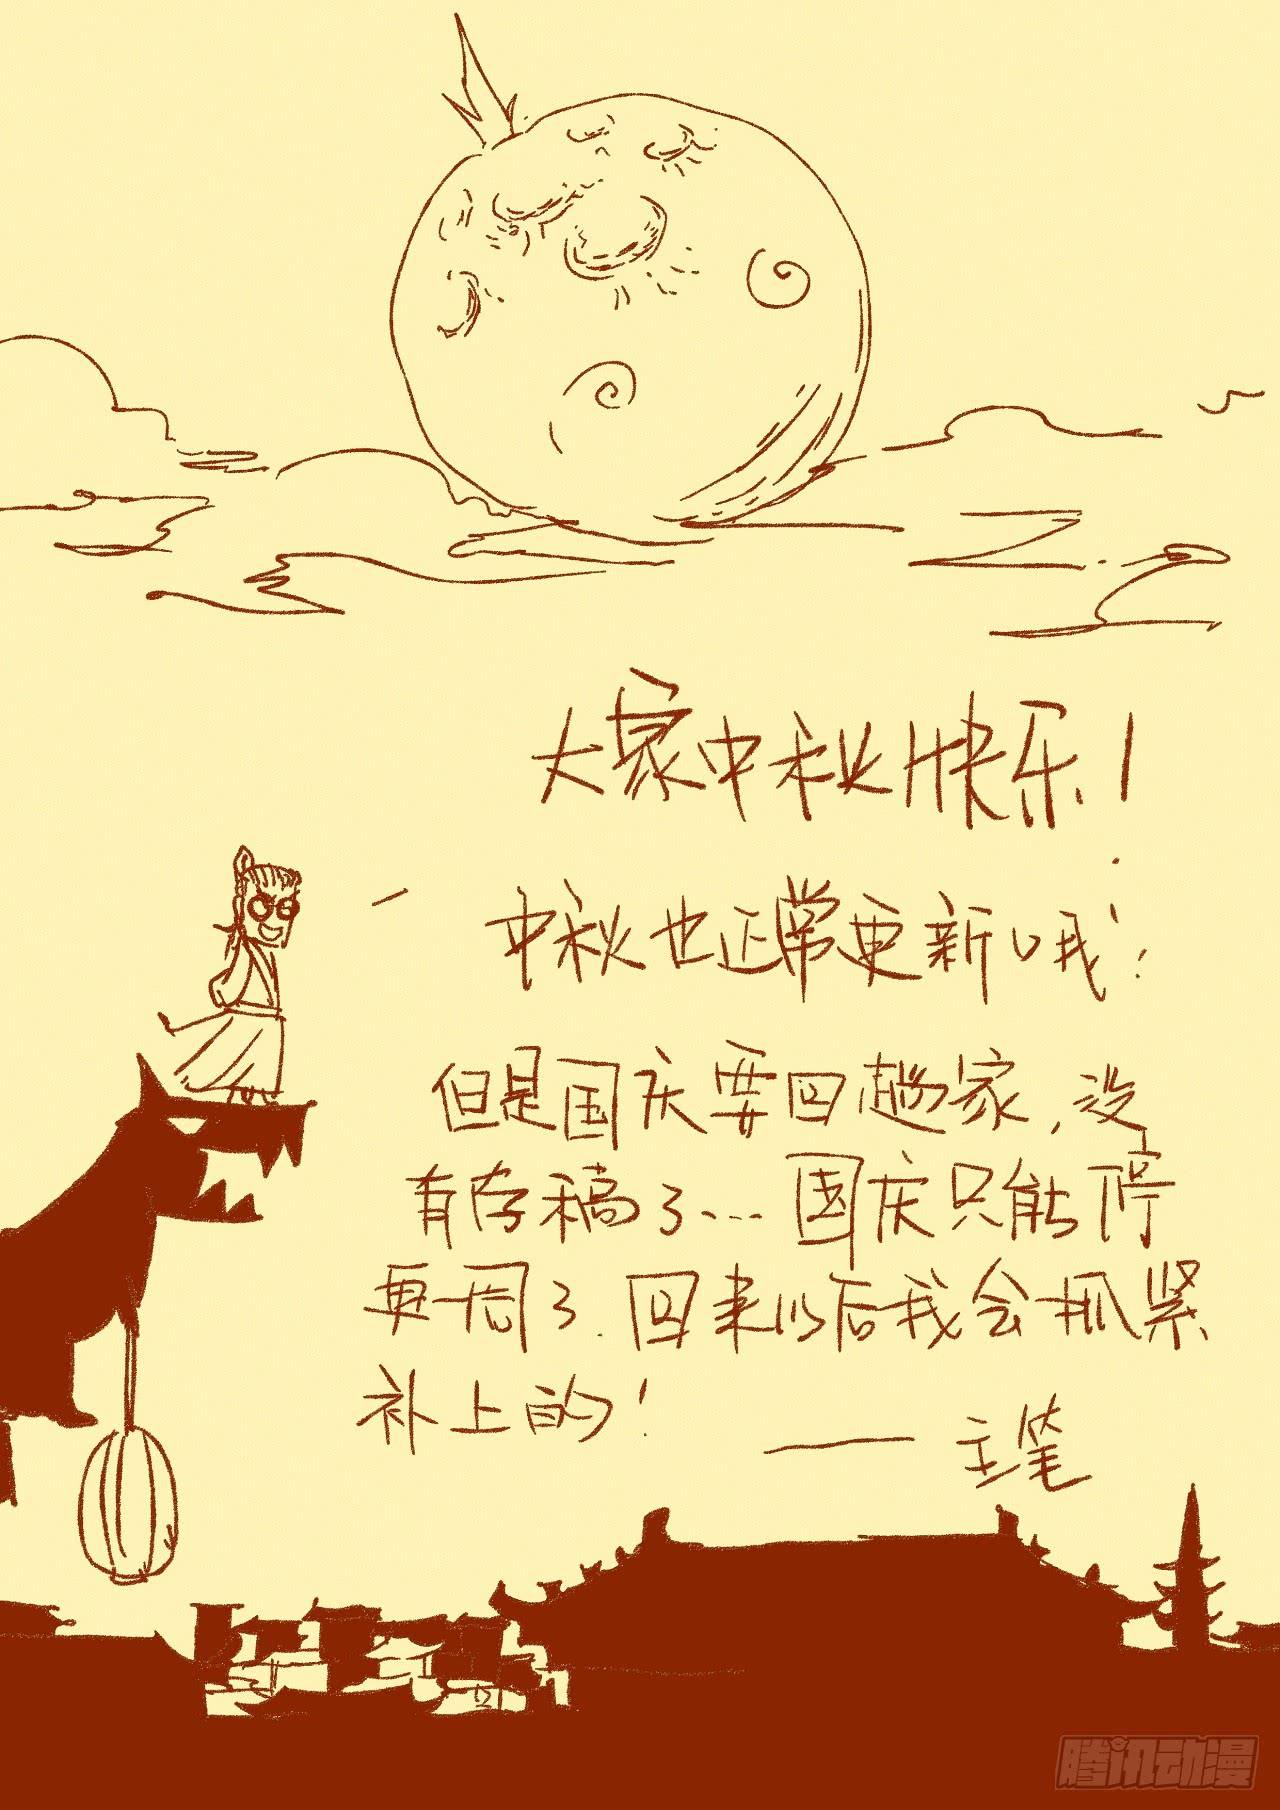 大家中秋快乐！
中秋也正常更新哦！
但是国庆要回趟家，没
有存稿了…国庆只能停
更一周了.回来以后我会抓紧
补上的！
——主笔
腾讯动漫